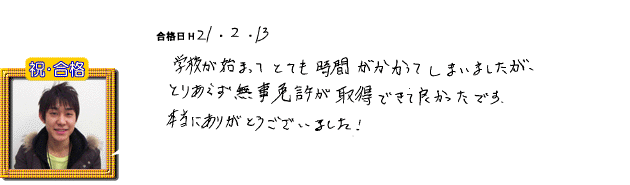 合格日H21.2.13
祝・合格
学校が始まってとても時間がかかってしまいましたが、
とりあえず無事免許が取得できて良かったです。
本当にありがとうございました！